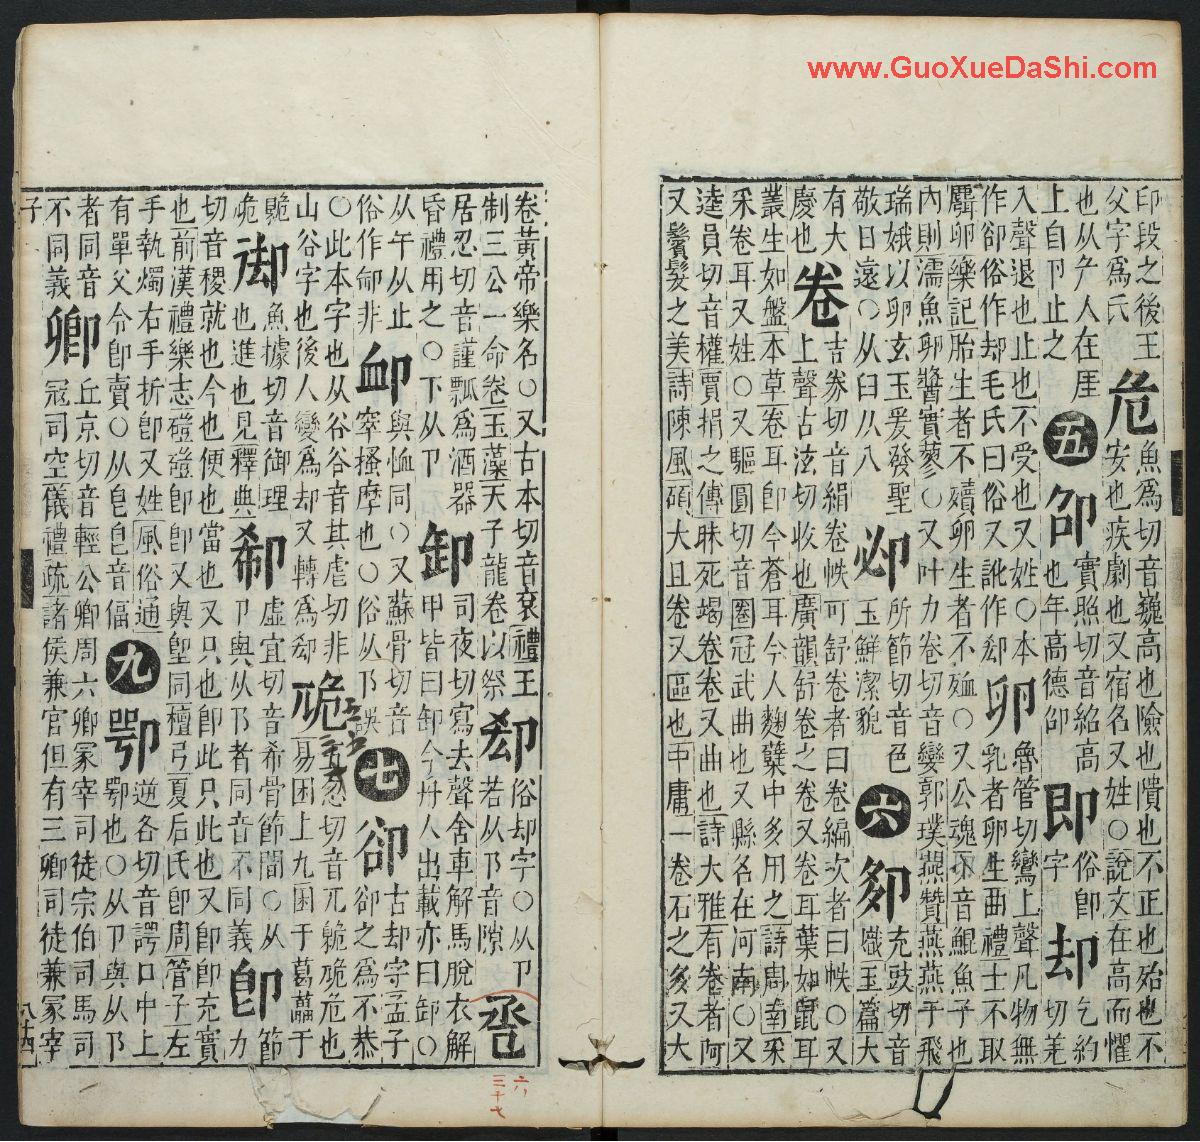 www.GuoXueDaShi.com
印段之後王 危 魚為切音巍高也險也隤也不正也殆也不
父字為氏 安也疾劇也又宿名又姓○說文在高而懼
也从𠂊人在厓 五 卲 實照切音紹高 即 俗卽 却 乞約
上自卪止之 也年高德卲 字 切羌
入聲退也止也不受也又姓○本 卵 魯管切鸞上聲凡物無
作卻俗作却毛氏曰俗又訛作刧 乳者卵生曲禮士不取
麛卵樂記胎生者不殰卵生者不殈○又公魂切音鯤魚子也
內則濡魚卵醬實蓼○又叶力卷切音孌郭璞燕贊燕燕于飛
瑞娥以卵玄玉爰發聖 所節切音色 六 夘 充豉切音
敬日遠○从臼从八 玉鮮潔貌 熾玉篇大
有大 卷 吉券切音絹卷帙可舒卷者曰卷編次者曰帙○又
慶也 上聲古泫切收也廣韻舒卷之卷又卷耳葉如鼠耳
叢生如盤本草卷耳卽今蒼耳今人麴糱中多用之詩周南采
采卷耳又姓○又驅圓切音圈冠武曲也又縣名在河南○又
逵員切音權賈捐之傳昧死竭卷卷又曲也詩大雅有卷者阿
又鬢髮之美詩陳風碩大且卷又區也中庸一卷石之多又大
卷黃帝樂名○又古本切音袞禮王 俗却字○从卪 巹
制三公一命卷玉藻天子龍卷以祭 若从阝音隙
居忍切音謹瓢為酒器 卸 司夜切寫去聲舍車解馬脫衣解
昏禮用之○下从卪 甲皆曰卸今舟人出載亦曰卸○
从午从止 卹 與恤同○又蘇骨切音 七 卻 古却字孟子
俗作卸非 窣搔摩也○俗从阝誤 卻之為不恭
○此本字也从谷谷音其虐切非 卼 五忽切音兀臲卼危也
山谷字也後人變為却又轉為刧 易困上九困于葛藟于
臲 御 魚據切音御理 虛宜切音希骨節間○从
卼 也進也見釋典 卪與从阝者同音不同義 卽 節力
切音稷就也今也便也當也又只也卽此只此也又卽卽充實
也前漢禮樂志磑磑卽卽又與堲同檀弓夏后氏卽周管子左
手執燭右手折卽又姓風俗通 九 卾 逆各切音諤口中上
有單父令卽賣○从皀皀音偪 卾也○从卪與从阝
者同音 卿 丘京切音輕公卿周六卿冢宰司徒宗伯司馬司
不同義 冠司空儀禮疏諸侯兼官但有三卿司徒兼冢宰
子 八十四
六
三十七